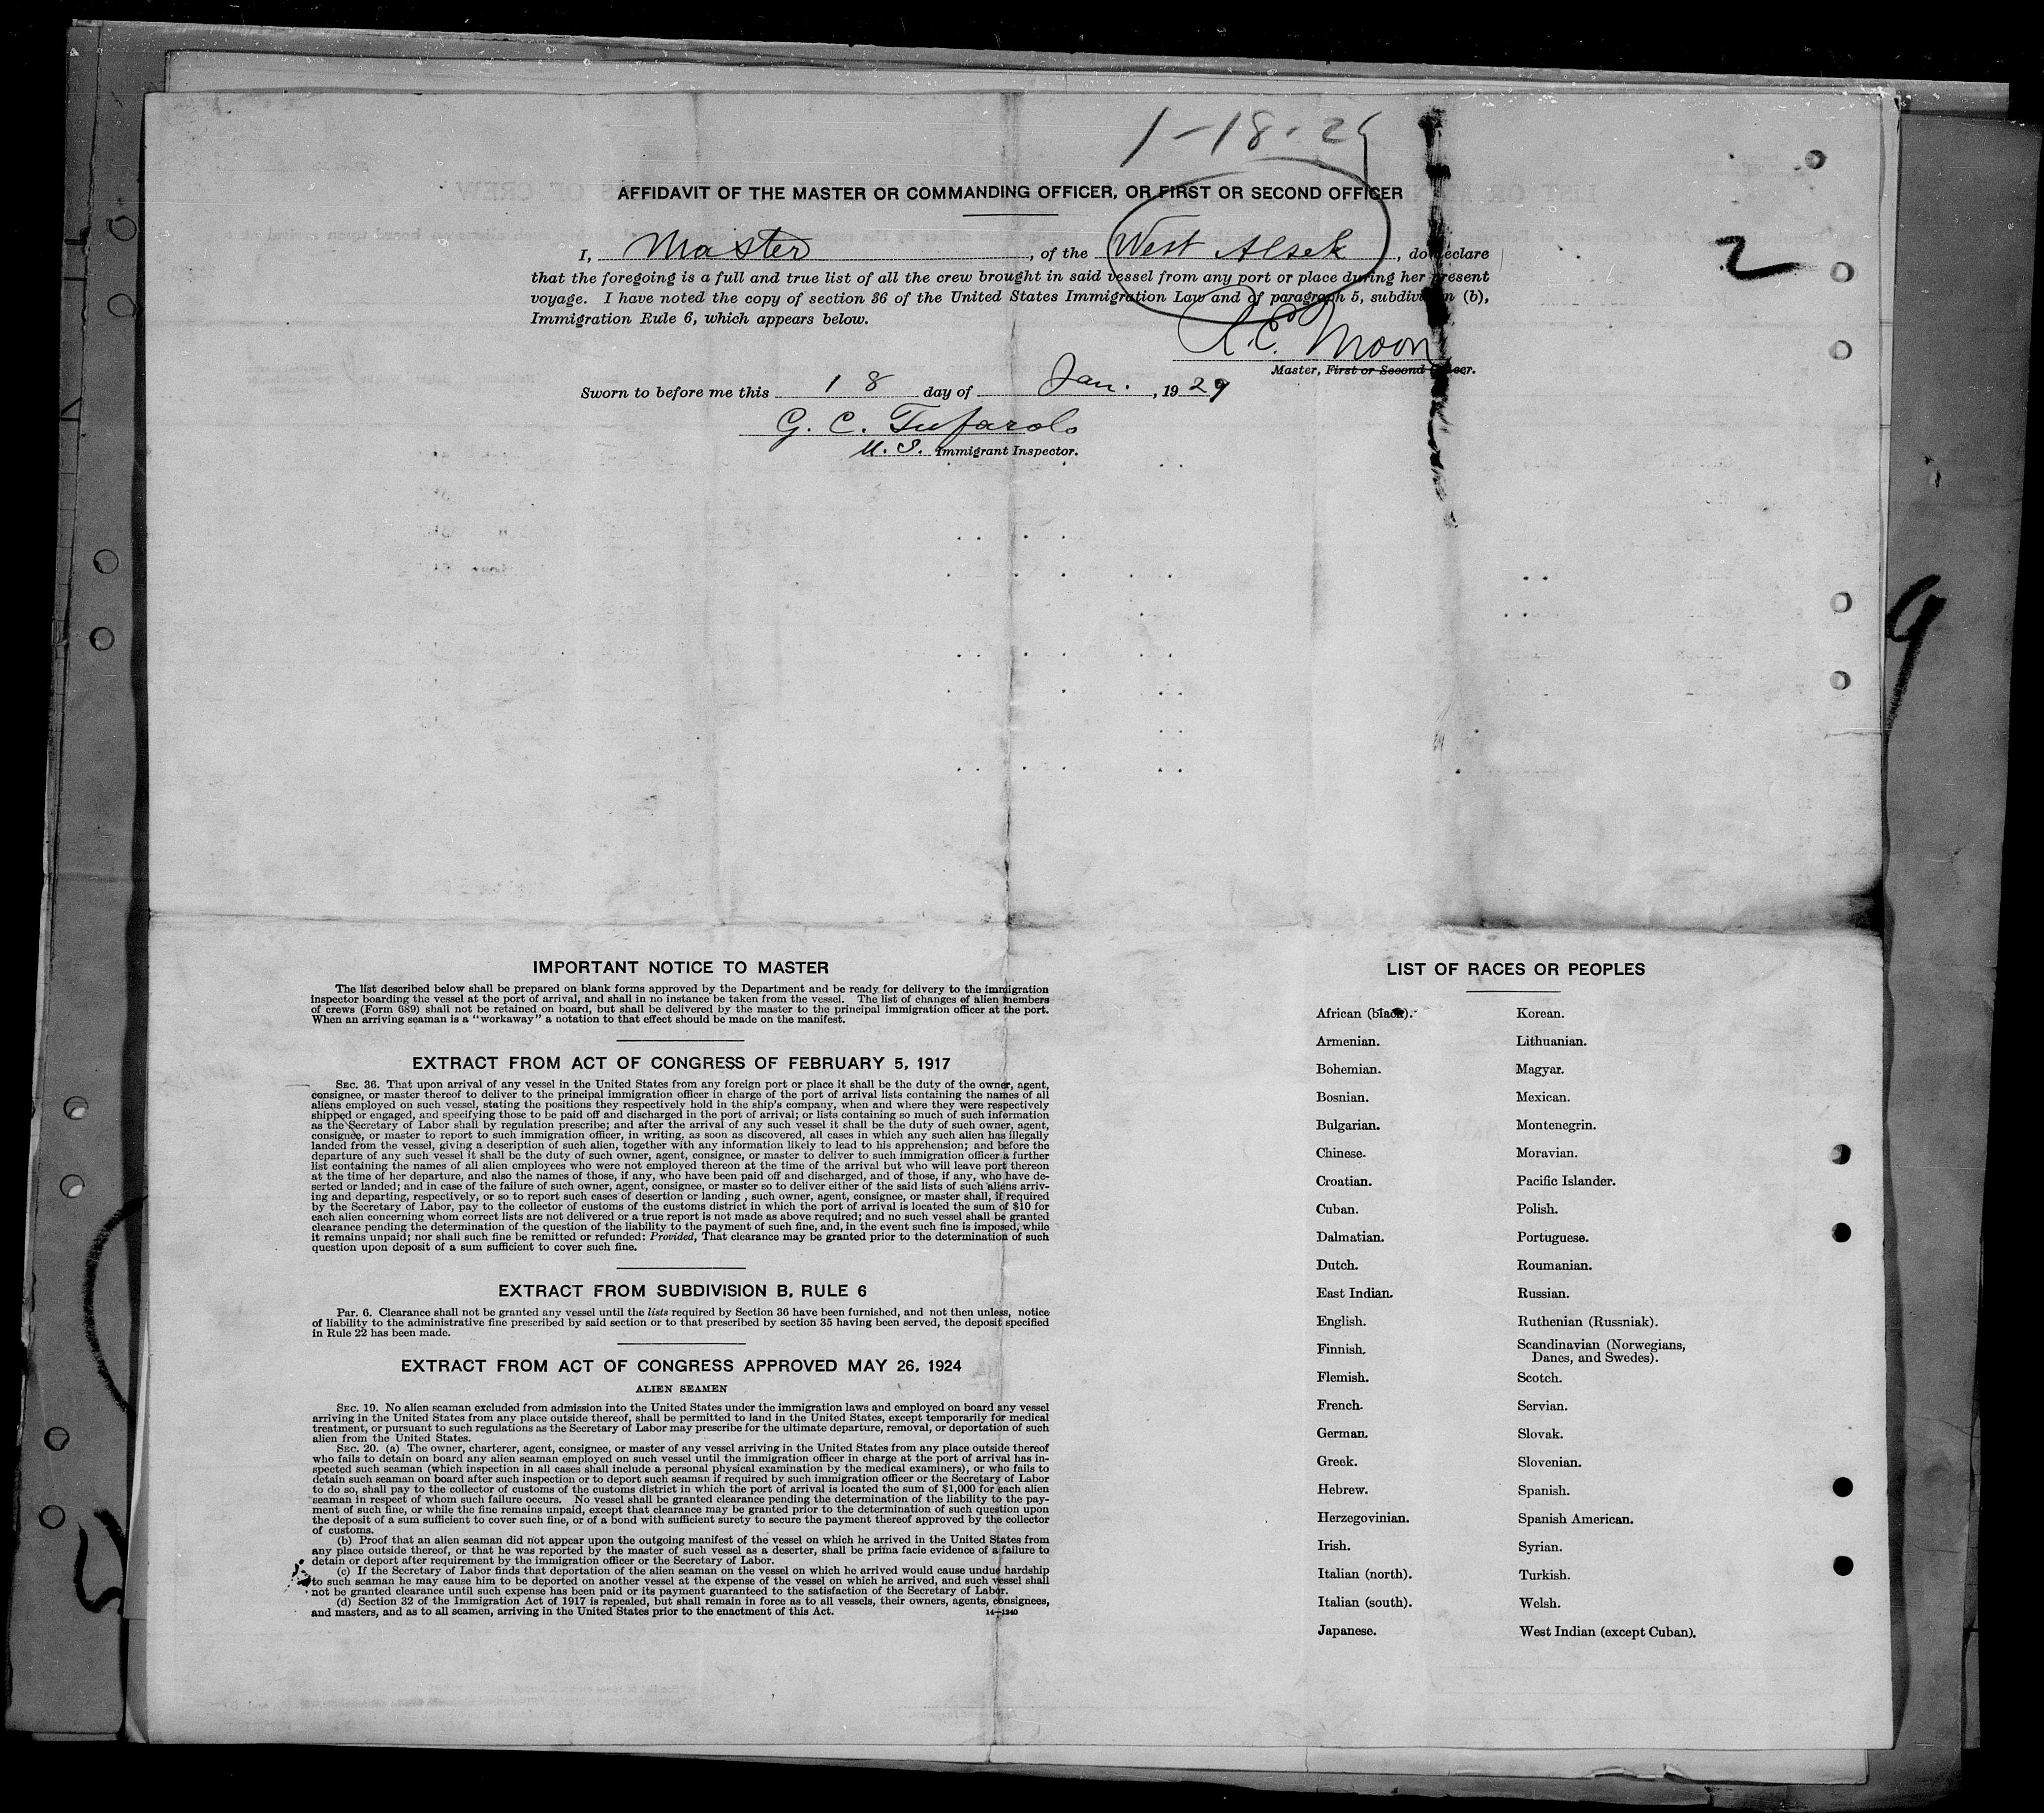 1-18-29
AFFIDAVIT OF THE MASTER OR COMMANDING OFFICER, OR FIRST OR SECOND OFFICER
2
I, Master, of the West Alsek, do declare
that the foregoing is a full and true list of all the crew brought in said vessel from any port or place during her present
voyage. I have noted the copy of section 36 of the United States Immigration Law and of paragraph 5, subdivision (b),
Immigration Rule 6, which appears below.
A. C. Moon
Master, First or Second Officer.
Sworn to before me this 18 day of Jan., 1929
G. C. Tufarolo
U. S. Immigrant Inspector.
9
IMPORTANT NOTICE TO MASTER
The list described below shall be prepared on blank forms approved by the Department and be ready for delivery to the immigration
inspector boarding the vessel at the port of arrival, and shall in no instance be taken from the vessel. The list of changes of alien members
of crews (Form 689) shall not be retained on board, but shall be delivered by the master to the principal immigration officer at the port.
When an arriving seaman is a "workaway" a notation to that effect should be made on the manifest.
EXTRACT FROM ACT OF CONGRESS OF FEBRUARY 5, 1917
SEC. 36. That upon arrival of any vessel in the United States from any foreign port or place it shall be the duty of the owner, agent,
consignee, or master thereof to deliver to the principal immigration officer in charge of the port of arrival lists containing the names of all
aliens employed on such vessel, stating the positions they respectively hold in the ship's company, when and where they were respectively
shipped or engaged, and specifying those to be paid off and discharged in the port of arrival; or lists containing so much of such information
as the Secretary of Labor shall by regulation prescribe; and after the arrival of any such vessel it shall be the duty of such owner, agent,
consignee, or master to report to such immigration officer, in writing, as soon as discovered, all cases in which any such alien has illegally
landed from the vessel, giving a description of such alien, together with any information likely to lead to his apprehension; and before the
departure of any such vessel it shall be the duty of such owner, agent, consignee, or master to deliver to such immigration officer a further
list containing the names of all alien employees who were not employed thereon at the time of the arrival but who will leave port thereon
at the time of her departure, and also the names of those, if any, who have been paid off and discharged, and of those, if any, who have de-
serted or landed; and in case of the failure of such owner, agent, consignee, or master so to deliver either of the said lists of such aliens arriv-
ing and departing, respectively, or so to report such cases of desertion or landing , such owner, agent, consignee, or master shall, if required
by the Secretary of Labor, pay to the collector of customs of the customs district in which the port of arrival is located the sum of $10 for
each alien concerning whom correct lists are not delivered or a true report is not made as above required; and no such vessel shall be granted
clearance pending the determination of the question of the liability to the payment of such fine, and, in the event such fine is imposed, while
it remains unpaid; nor shall such fine be remitted or refunded: Provided, That clearance may be granted prior to the determination of such
question upon deposit of a sum sufficient to cover such fine.
EXTRACT FROM SUBDIVISION B, RULE 6
Par. 6. Clearance shall not be granted any vessel until the lists required by Section 36 have been furnished, and not then unless, notice
of liability to the administrative fine prescribed by said section or to that prescribed by section 35 having been served, the deposit specified
in Rule 22 has been made.
EXTRACT FROM ACT OF CONGRESS APPROVED MAY 26, 1924
ALIEN SEAMEN
SEC. 19. No alien seaman excluded from admission into the United States under the immigration laws and employed on board any vessel
arriving in the United States from any place outside thereof, shall be permitted to land in the United States, except temporarily for medical
treatment, or pursuant to such regulations as the Secretary of Labor may prescribe for the ultimate departure, removal, or deportation of such
alien from the United States.
SEC. 20. (a) The owner, charterer, agent, consignee, or master of any vessel arriving in the United States from any place outside thereof
who fails to detain on board any alien seaman employed on such vessel until the immigration officer in charge at the port of arrival has in-
spected such seaman (which inspection in all cases shall include a personal physical examination by the medical examiners), or who fails to
detain such seaman on board after such inspection or to deport such seaman if required by such immigration officer or the Secretary of Labor
to do so, shall pay to the collector of customs of the customs district in which the port of arrival is located the sum of $1,000 for each alien
seaman in respect of whom such failure occurs. No vessel shall be granted clearance pending the determination of the liability to the pay-
ment of such fine, or while the fine remains unpaid, except that clearance may be granted prior to the determination of such question upon
the deposit of a sum sufficient to cover such fine, or of a bond with sufficient surety to secure the payment thereof approved by the collector
of customs.
(b) Proof that an alien seaman did not appear upon the outgoing manifest of the vessel on which he arrived in the United States from
any place outside thereof, or that he was reported by the master of such vessel as a deserter, shall be prima facie evidence of a failure to
detain or deport after requirement by the immigration officer or the Secretary of Labor.
(c) If the Secretary of Labor finds that deportation of the alien seaman on the vessel on which he arrived would cause undue hardship
to such seaman he may cause him to be deported on another vessel at the expense of the vessel on which he arrived, and such vessel shall
not be granted clearance until such expense has been paid or its payment guaranteed to the satisfaction of the Secretary of Labor.
(d) Section 32 of the Immigration Act of 1917 is repealed, but shall remain in force as to all vessels, their owners, agents, consignees,
and masters, and as to all seamen, arriving in the United States prior to the enactment of this Act.
14-1240
LIST OF RACES OR PEOPLES
African (black).
Armenian.
Bohemian.
Bosnian.
Bulgarian.
Chinese.
Croatian.
Cuban.
Dalmatian.
Dutch.
East Indian.
English.
Finnish.
Flemish.
French.
German.
Greek.
Hebrew.
Herzegovinian.
Irish.
Italian (north).
Italian (south).
Japanese.
Korean.
Lithuanian.
Magyar.
Mexican.
Montenegrin.
Moravian.
Pacific Islander.
Polish.
Portuguese.
Roumanian.
Russian.
Ruthenian (Russniak).
Scandinavian (Norwegians,
Danes, and Swedes).
Scotch.
Servian.
Slovak.
Slovenian.
Spanish.
Spanish American.
Syrian.
Turkish.
Welsh.
West Indian (except Cuban).